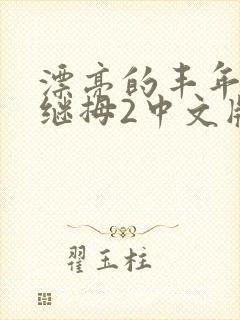 漂亮的丰年
继拇2中文版
翟玉柱